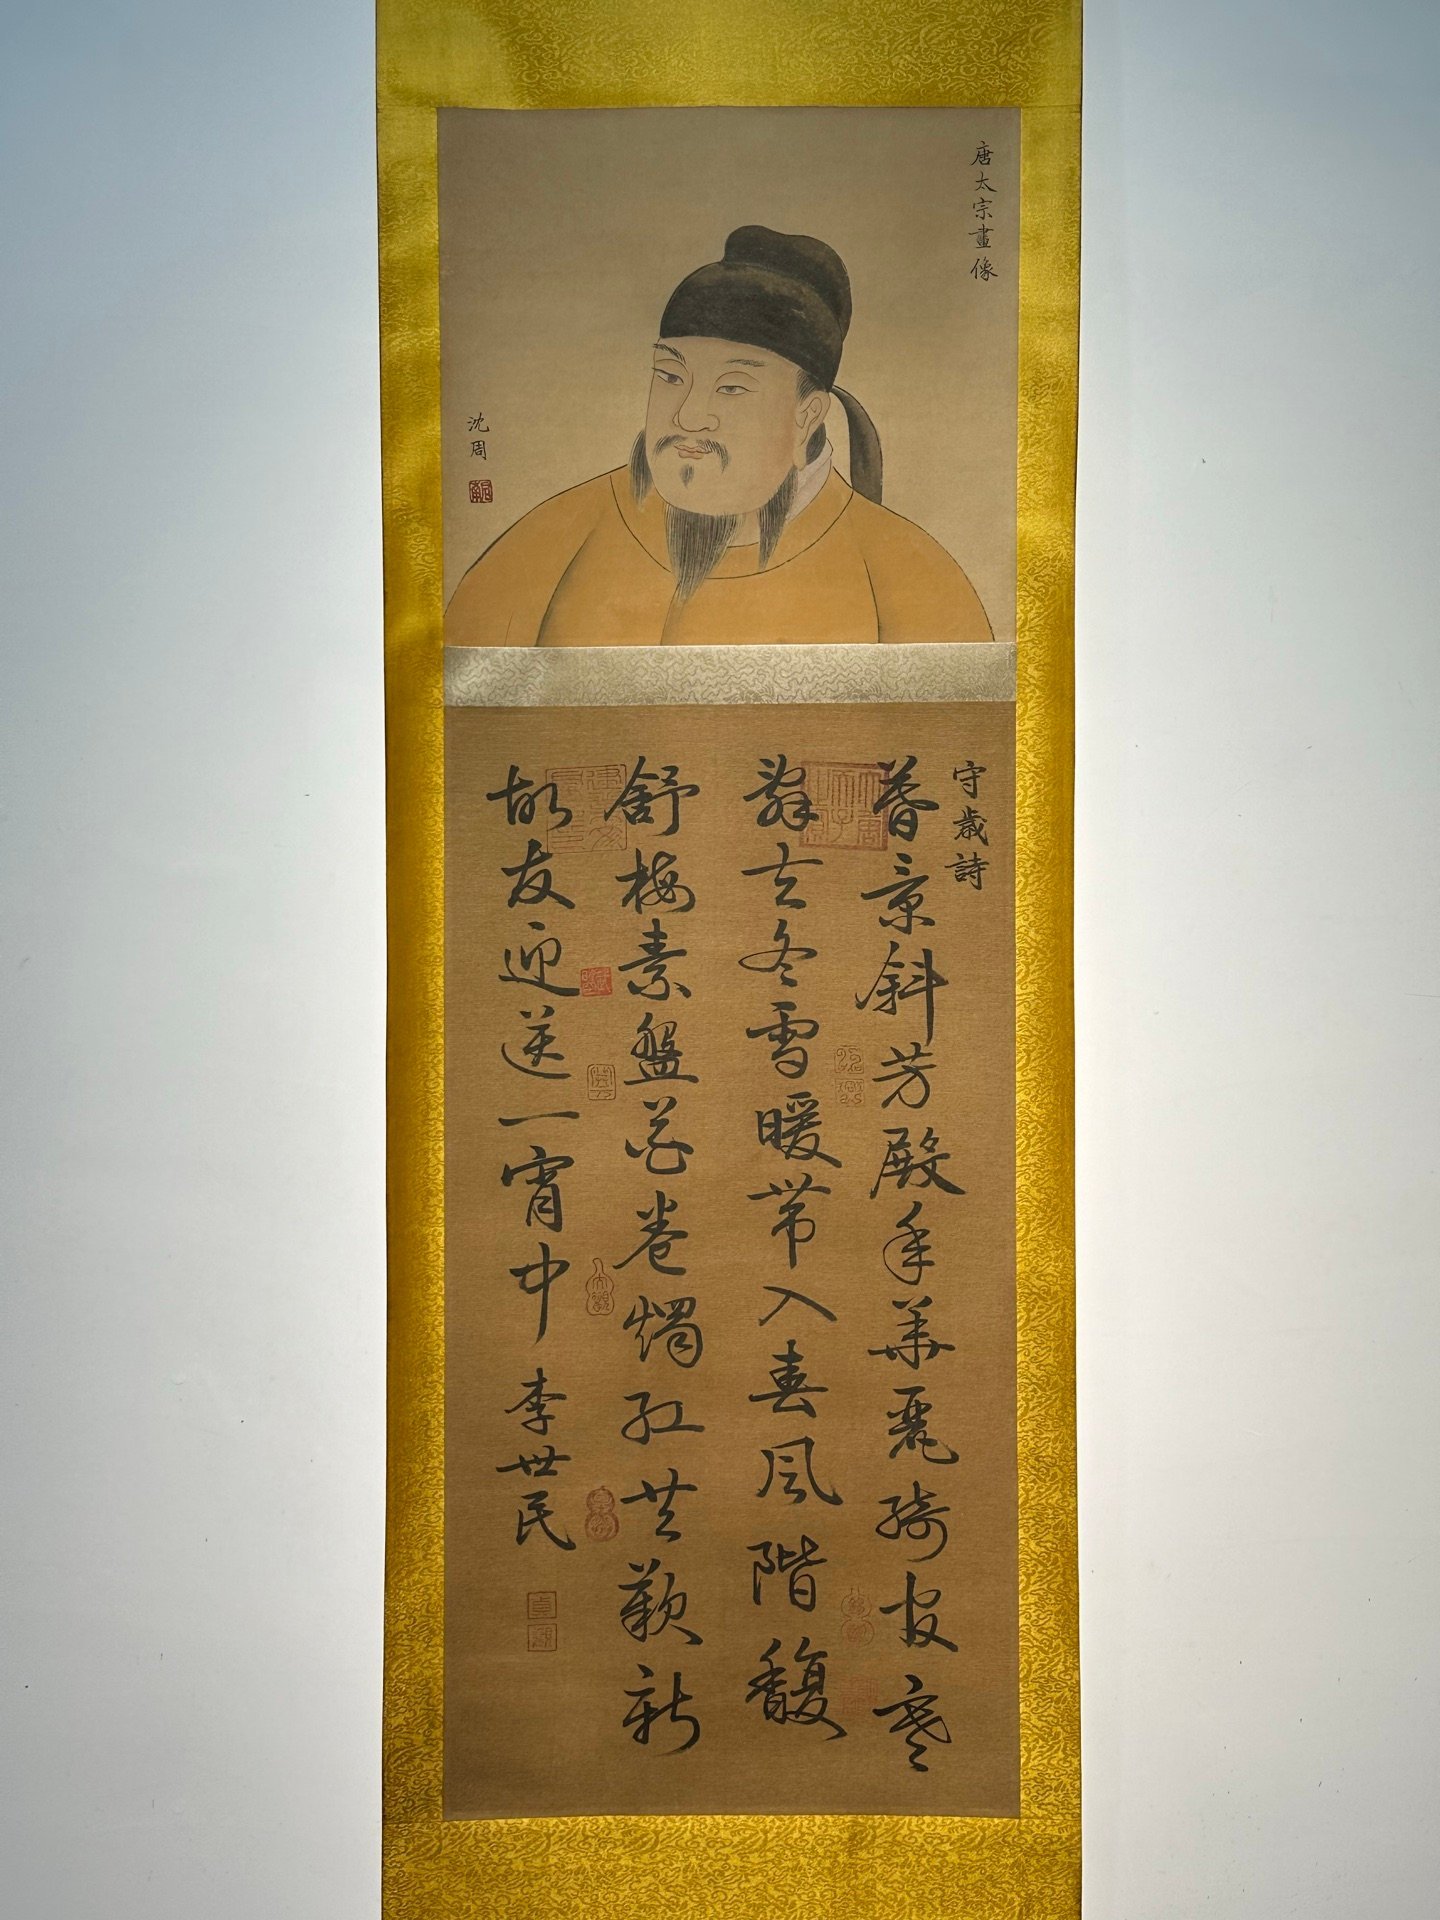 唐太宗畫像
沈周
守歲詩
暮景斜芳殿年華麗綺宮寒
辭去冬雪暖帶入春風階馥
舒梅素盤花卷燭紅共歡新
故友迎送一宵中
李世民
貞觀